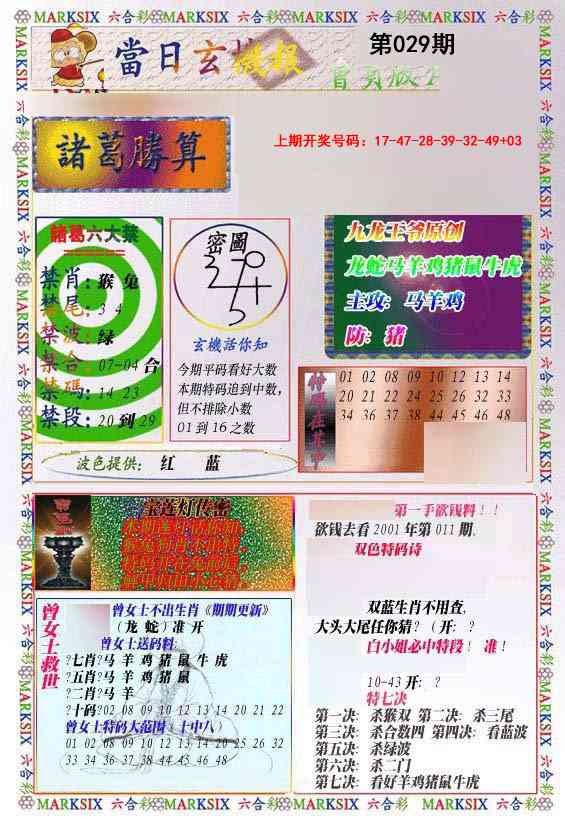 MARKSIX 六合彩 MARKSIX 六合彩 MARKSIX 六合彩 MARKSIX 六合彩 MARKSIX 六合彩
當日玄機報
第029期
上期开奖号码：17-47-28-39-32-49+03
諸葛勝算
諸葛六大禁
禁肖：猴 兔
禁尾：3 4
禁波：绿
禁合：07-04 合
禁碼：14 23
禁段：20 到 29
密圖
玄機話你知
今期平码看好大数
本期特码追到中数，
但不排除小数
01 到 16 之数
九龙王爷原创
龙蛇马羊鸡猪鼠牛虎
主攻：马羊鸡
防：猪
特碼在其中
01 02 08 09 10 12 13 14
20 21 22 24 25 26 32 33
34 36 37 38 44 45 46 48
波色提供： 红 蓝
宝莲灯传密
曾女士救世
曾女士不出生肖《期期更新》
（龙 蛇）准 开
曾女士送码料：
?七肖?马 羊 鸡 猪 鼠 牛 虎
?五肖?马 羊 鸡 猪 鼠
?二肖?马 羊
?十码?02 08 09 10 12 13 14 20 21 22
曾女士特码大范围（十中八）
01 02 08 09 10 12 13 14 20 25 26 32
33 34 36 37 38 44 45 46 48
第一手欲钱料！！
欲钱去看 2001 年第 011 期.
双色特码诗
双蓝生肖不用查,
大头大尾任你猜？（开：？
白小姐必中特段！ 准！
10-43 开：？
特七决
第一决：杀猴双 第二决：杀三尾
第三决：杀合数四 第四决：看蓝波
第五决：杀绿波
第六决：杀二门
第七决：看好羊鸡猪鼠牛虎
MARKSIX 六合彩 MARKSIX 六合彩 MARKSIX 六合彩 MARKSIX 六合彩 MARKSIX 六合彩